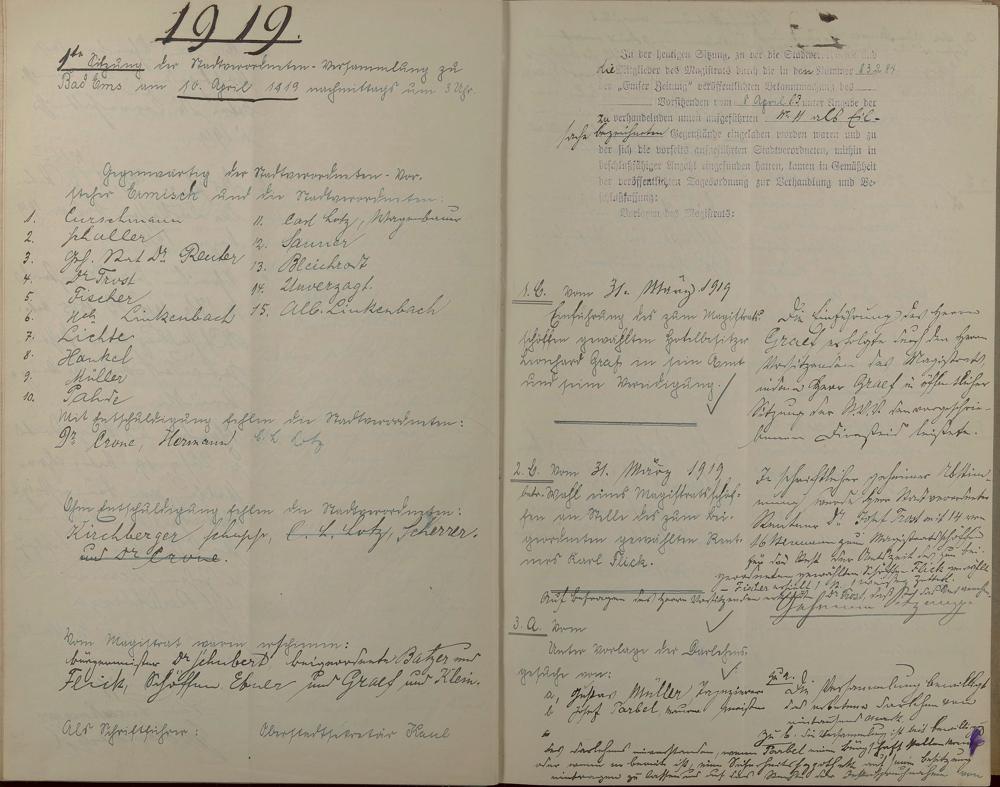 1919.
1te Sitzung der Stadtverordneten-Versammlung zu
Bad Ems am 10. April 1919 nachmittags um 3 Uhr.
Gegenwärtig der Stadtverordneten-Vor-
steher Ermisch und die Stadtverordneten:
1. Curschmann
2. Schaller
3. Geh. Rat Dr. Reuter
4. Dr Trost
5. Fischer
6. Linkenbach
7. Lichte
8. Hankel
9. Müller
10. Pahde
11. Carl Lotz, Wagenbauer
12. Sanner
13. Bleichrodt
14. Unverzagt.
15. Alb. Linkenbach
Mit Entschuldigung fehlen die Stadtverordneten:
Dr. Crone, Hermann C. L. Lotz
Ohne Entschuldigung fehlen die Stadtverordneten:
Kirchberger, C. L. Lotz, Scherer.
und Dr Crone.
Vom Magistrat waren erschienen:
Bürgermeister Dr Schubert Beigeordnete Balzer und
Flick, Schöffen Ebner und Graef und Klein.
Als Schriftführer: Oberstadtsekretär Kaul
In der heutigen Sitzung, zu der die Stadtverordneten und
die Mitglieder des Magistrats durch die in den Nummer 83 2 84
der „Emser Zeitung" veröffentlichten Bekanntmachung des
Vorsitzenden vom 8 April 03 unter Angabe der
zu verhandelnden unten aufgeführten No. 11 als Eil-
sache bezeichneten Gegenstände eingeladen worden waren und zu
der sich die vorseits aufgeführten Stadtverordneten, mithin in
beschlußfähiger Anzahl eingefunden hatten, kamen in Gemäßheit
der veröffentlichten Tagesordnung zur Verhandlung und Be-
schlußfassung:
Vorlagen des Magistrats:
1. B. vom 31. März 1919
Einführung des zum Magistrats-
schöffen gewählten Hotelbesitzer
Leonhard Graf in sein Amt
und seine Vereidigung.
Die Einführung des Herrn
Graef erfolgte durch den Herrn
Vorsitzenden des Magistrats
indem Herr Graef in öffentlicher
Sitzung der den vorgeschrie-
benen Diensteid leistete.
2. B. vom 31. März 1919.
betr. Wahl eines Magistratsschöf-
fen an Stelle des zum Bei-
geordneten gewählten Rent-
ners Karl Flick.
In schriftlicher geheimer Abstim-
mung ward Herr Stadtverordneter
Dr. Trost mit 14 von
16 Stimmen zum Magistratsschöffen
für den Rest der Amtszeit des zum Bei-
geordneten gewählten Schöffen Flick gewählt
Fischer erhielt 1
Auf Befragen des Herrn Vorsitzenden Dr Trost, daß
3. A. vom
Unter Vorlage der Darlehens-
gesuche von:
a, Gustav Müller
b, Josef Parbel, Maurermeister
Zu a. Die Versammlung bewilligt
das erbetene Darlehen von
eintausend Mark.
Zu b. die Versammlung ist mit
des Darlehens einverstanden, wenn Parbel einen Bürgschaft
oder wenn er bereit ist, eine Sicherheitshypothek auf sein Besitzung
eintragen zu lassen und auf das